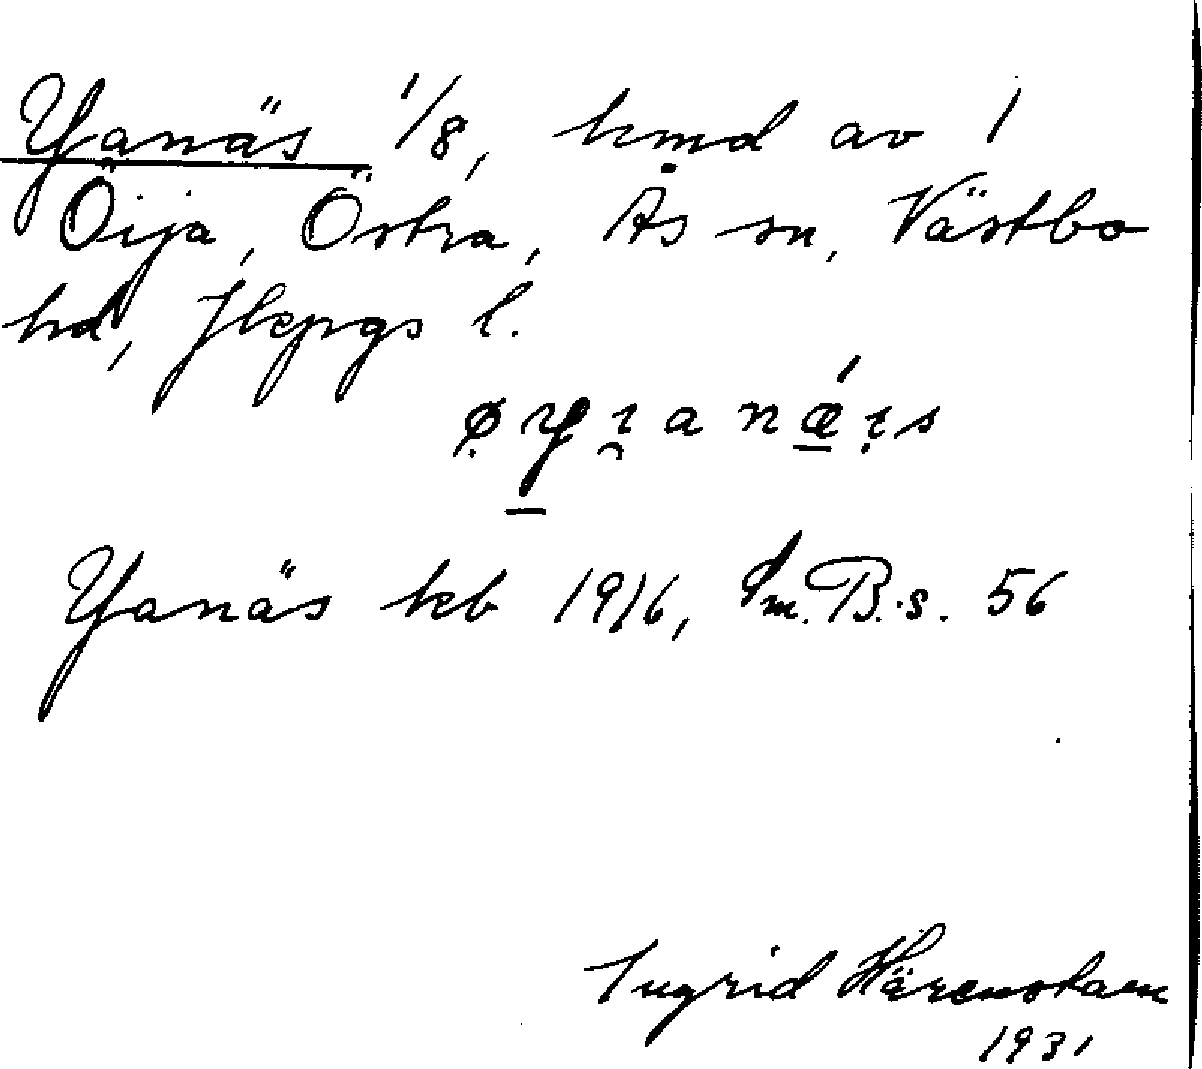 Yanäs 1/8, hmd av 1
Öija, Östra, Ås sn, Västbo
hd, Jkpgs l.
Yanäs keb 1916, Sm. B. s. 56
Ingrid Härenstam
1931